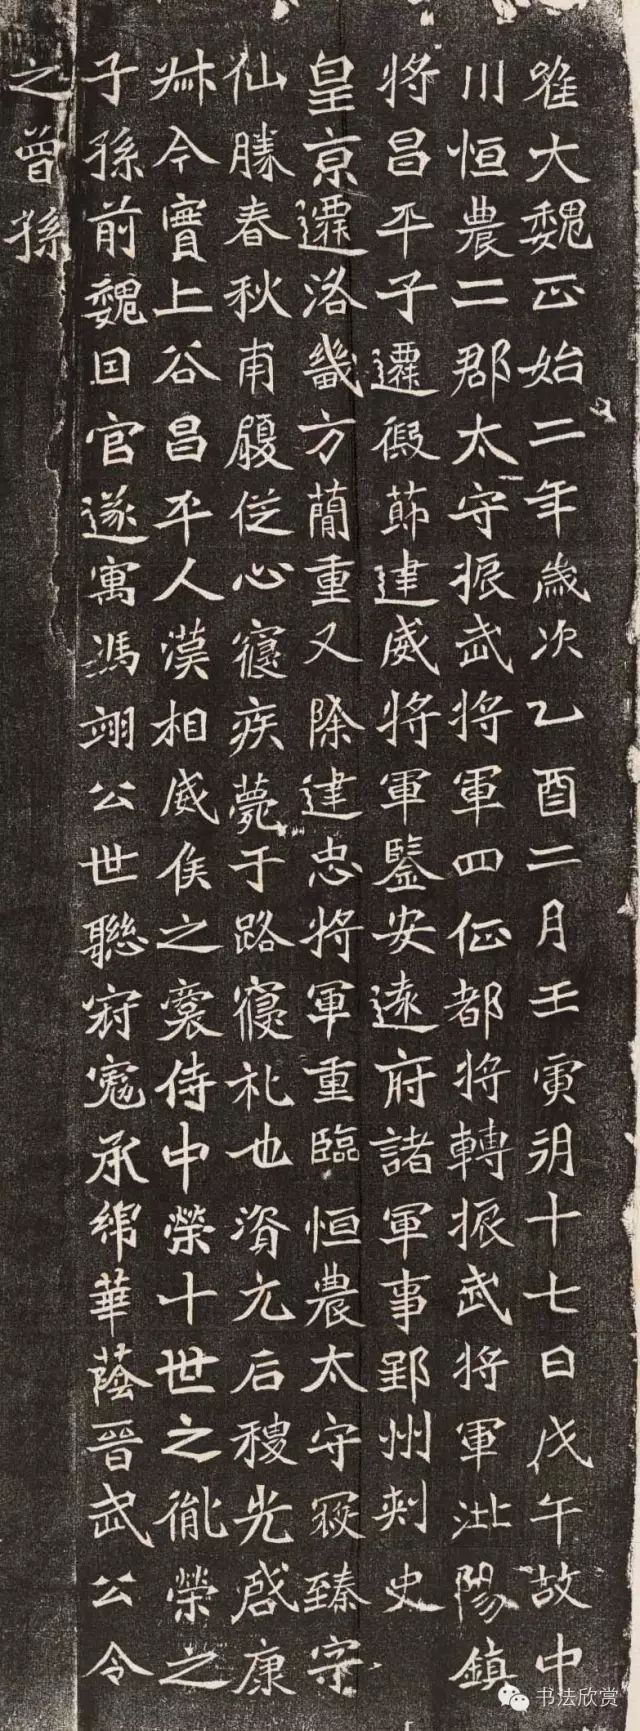 唯大魏正始二年歲次乙酉二月壬寅朔十七日戊午故中
川恒農二郡太守振武將軍四征都將轉振武將軍沘陽鎮
將昌平子遷假節建威將軍鑒安遠府諸軍事郢州刺史
皇京遷洛畿方簡重又除建忠將軍重臨恒農太守寇臻字
仙勝春秋甫履從心寢疾薨于路寢礼也資元后稷光啓康
叔今實上谷昌平人漢相威侯之裔侍中榮十世之胤榮之
子孫前魏因官遂寓馮翊公世聯冠冕承綿華蔭晉武公令
之曾孫
书法欣赏